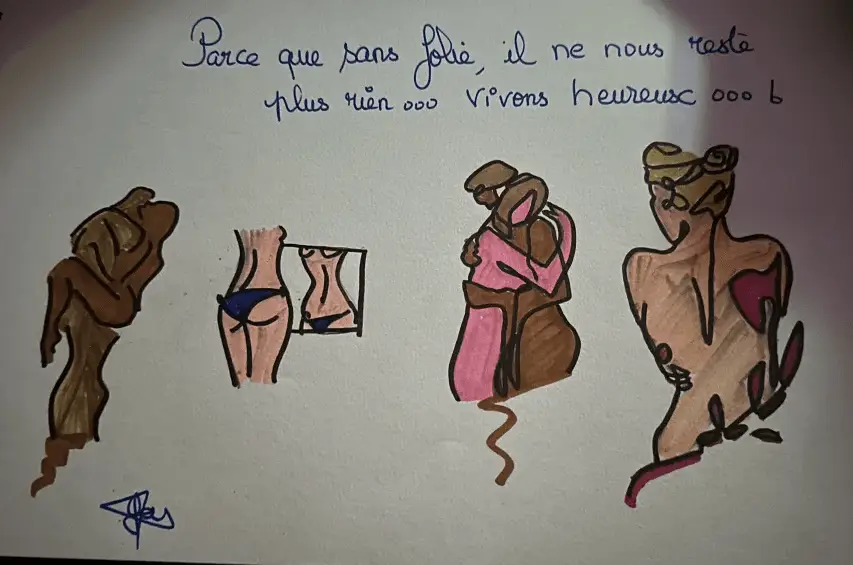 Parce que sans folie, il ne nous reste
plus rien ooo vivons heureux ooo b